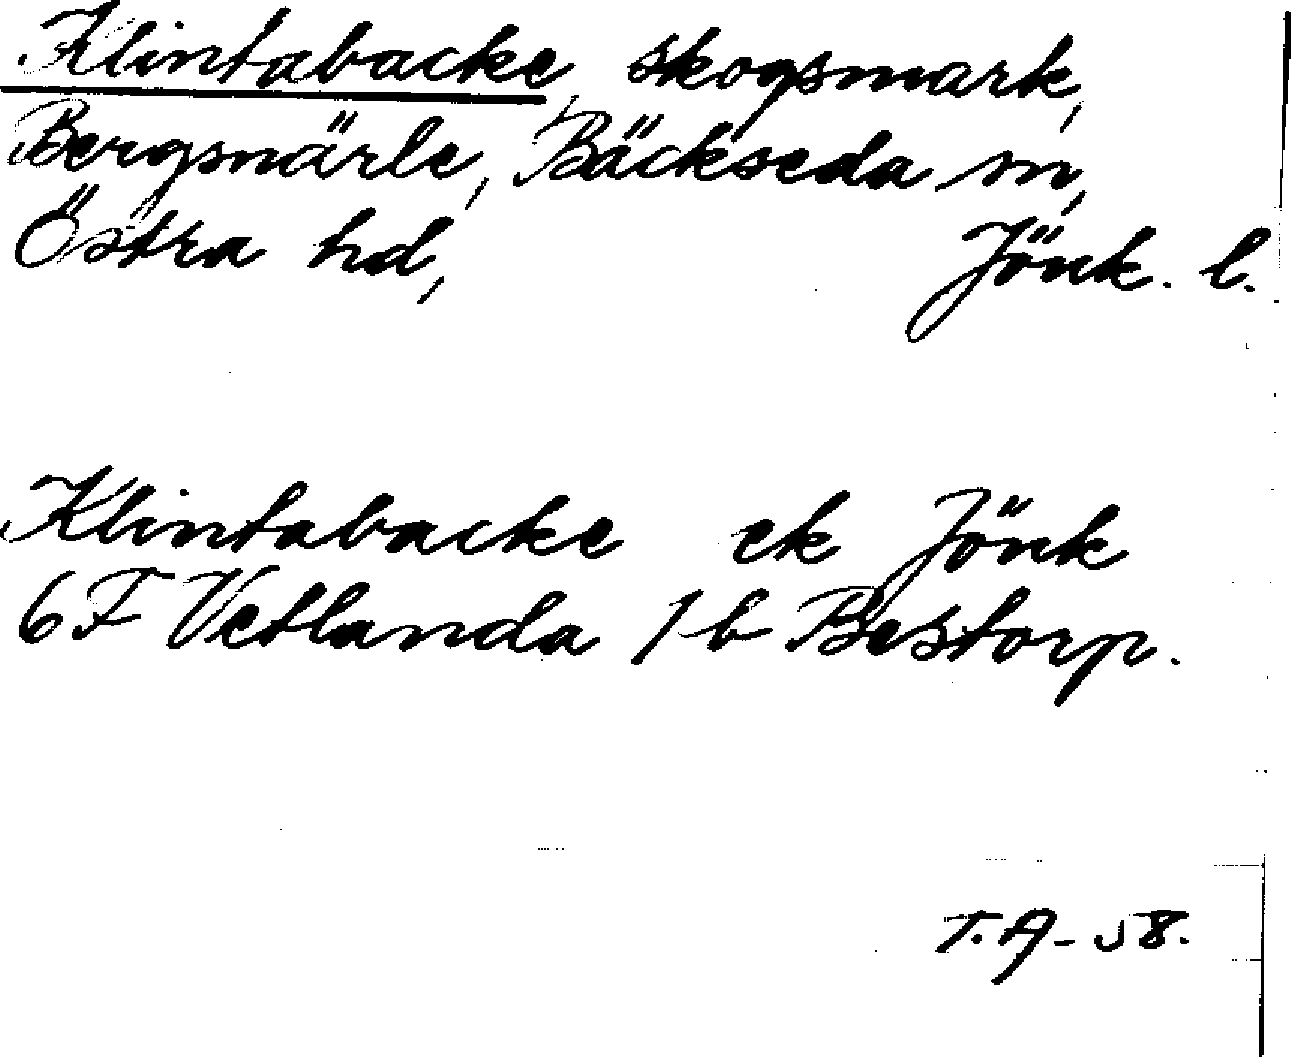 Klintabacke, skogsmark,
Bergsnärle, Bäckseda sn,
Östra hd, Jönk. l.
Klintabacke ek Jönk
6F Vetlanda 1b Bestorp.
T.A-58.